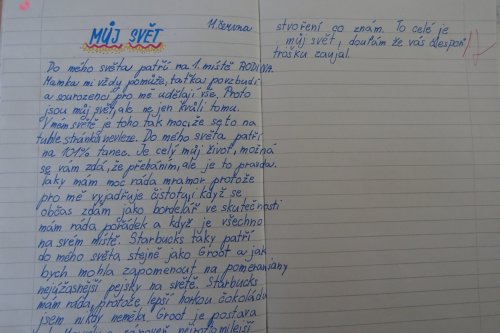 11. června
MŮJ SVĚT
Do mého světa patří na 1. místě RODINA.
Mamka mi vždy pomůže, taťka povzbudí
a sourozenci pro mě udělají vše. Proto
jsou můj svět, ale ne jen kvůli tomu.
V mém světě je toho tak moc, že se to na
tuhle stránku nevleze. Do mého světa patří
na 101% tanec. Je celý můj život, možná
se vám zdá, že přeháním, ale je to pravda.
Taky mám moc ráda mramor protože
pro mě vyjadřuje čistotu, i když se
občas zdám jako bordelář ve skutečnosti
mám ráda pořádek a když je všechno
na svém místě. Starbucks taky patří
do mého světa stejně jako Groot a jak
bych mohla zapomenout na pomeraniany
nejúžasnější pejsky na světě. Starbucks
mám ráda, protože lepší horkou čokoládu
jsem nikdy neměla. Groot je postava
zároveň nejroztomilejší
stvoření co znám. To celé je
můj svět, doufám že vás alespoň
trošku zaujal.